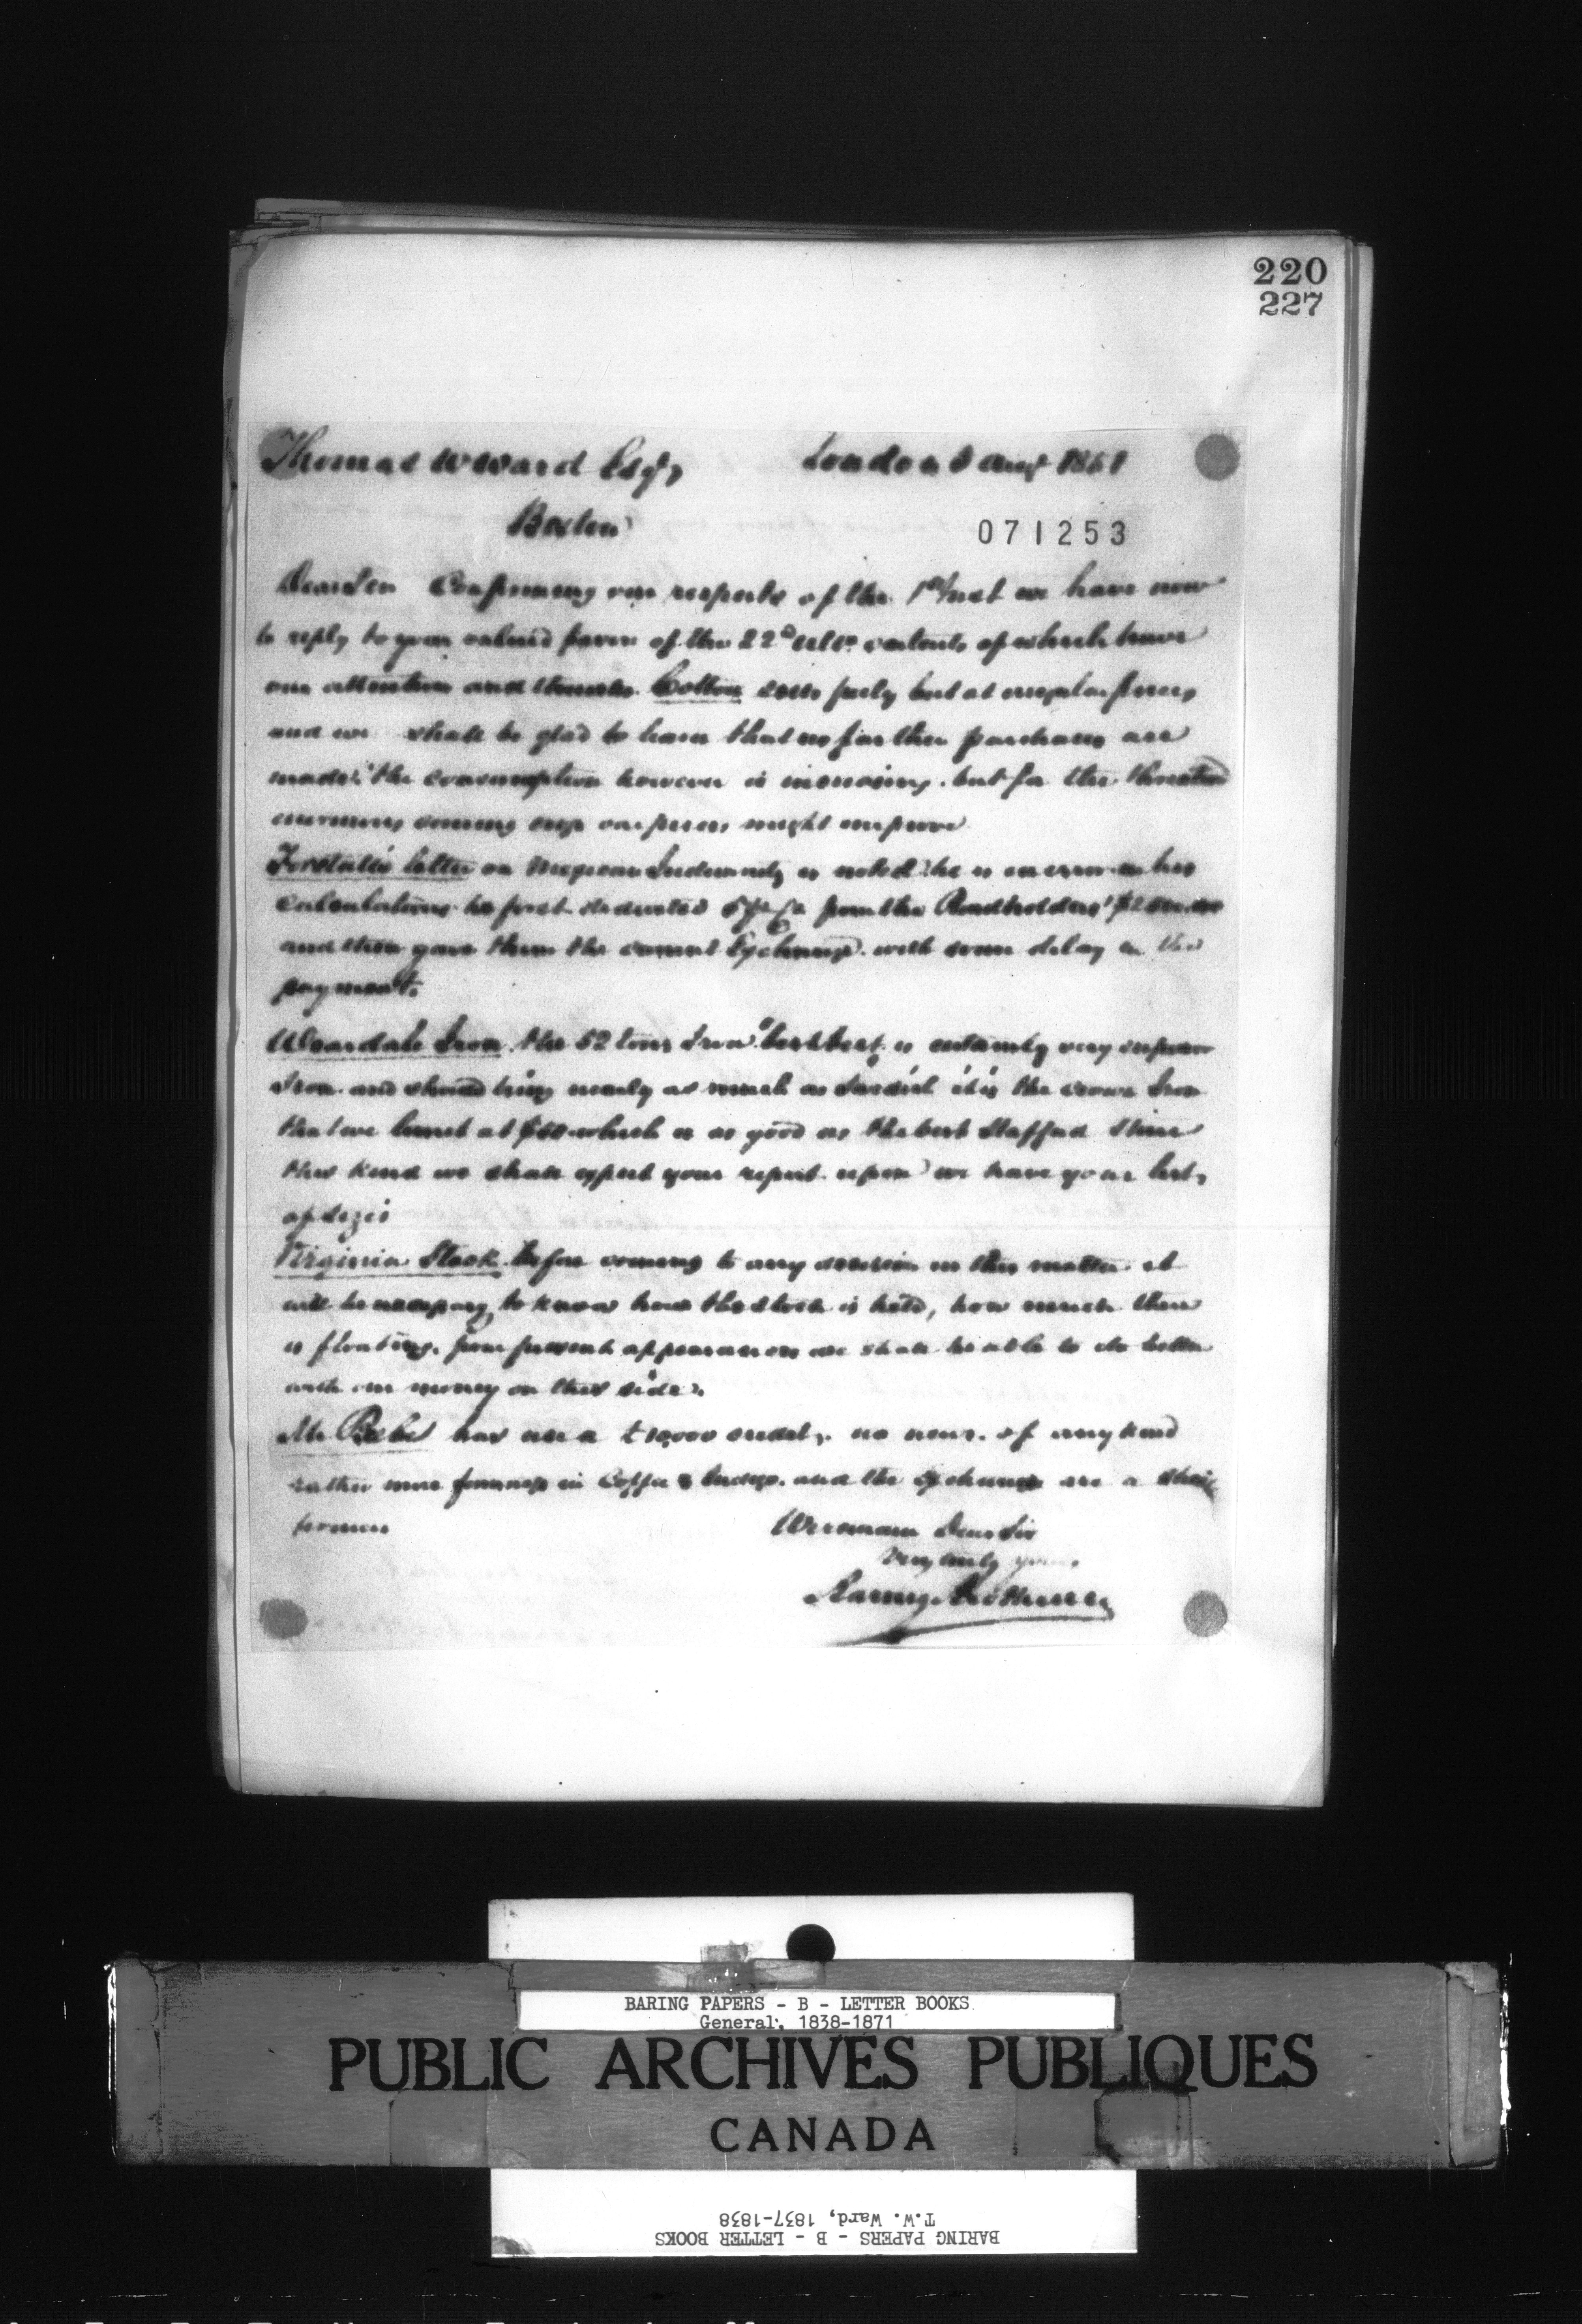 220
227
Thomas W Ward Esqr London 8 Aug 1851
Boston
071253
Dear Sir Confirming our respects of the 1st Inst we have now
to reply to your valued favor of the 22d ulto contents of which have
our attention and thanks. Cotton sells freely but at irregular prices
and we shall be glad to learn that no further purchases are
made. the consumption however is increasing. but for the threatened
enormous coming crop our prices might improve
Forstall's letter on Mexican Indemnity is noted he is in error in his
calculations he first deducted 5 p% from the Bondholders'
and then gave them the current Exchange. with some delay in the
payment.
Weardale Iron. the 52 tons Iron "best best" is certainly very superior
Iron and should bring nearly as much as Swedish it is the crown Iron
that we at which is as good as the best Stafford shire
this kind we shall expect your report upon we have your list
of sizes
Virginia Stock. before coming to any decision in this matter it
will be necessary to know how the stock is held, how much there
is floating. from present appearances we shall be able to do better
with our money on this side.
Mr has on a £10,000 credit. no news. of any kind
rather more firmness in Coffee & Indigo. and the exchanges are a shade
firmer
We remain Dear Sir
Very truly yours
Baring Brothers &Co
BARING PAPERS - B - LETTER BOOKS
General, 1838-1871
PUBLIC ARCHIVES PUBLIQUES
CANADA
BARING PAPERS - B - LETTER BOOKS
T.W. Ward, 1837-1838